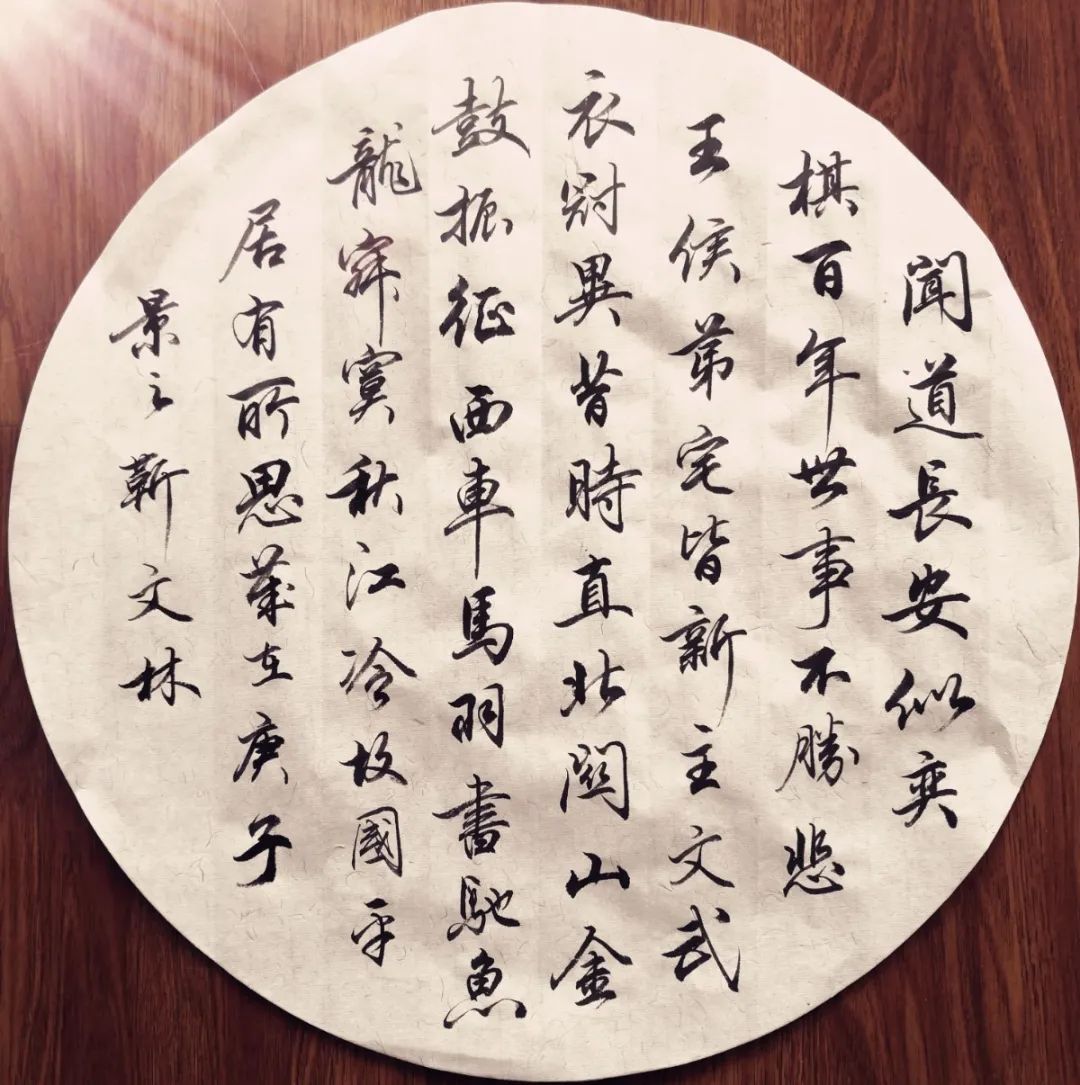 聞道長安似奕
棋百年世事不勝悲
王侯苐宅皆新主文武
衣冠異昔時直北關山金
鼓振征西車馬羽書馳魚
龍寂寞秋江冷故國平
居有所思歲在庚子
景之靳文林